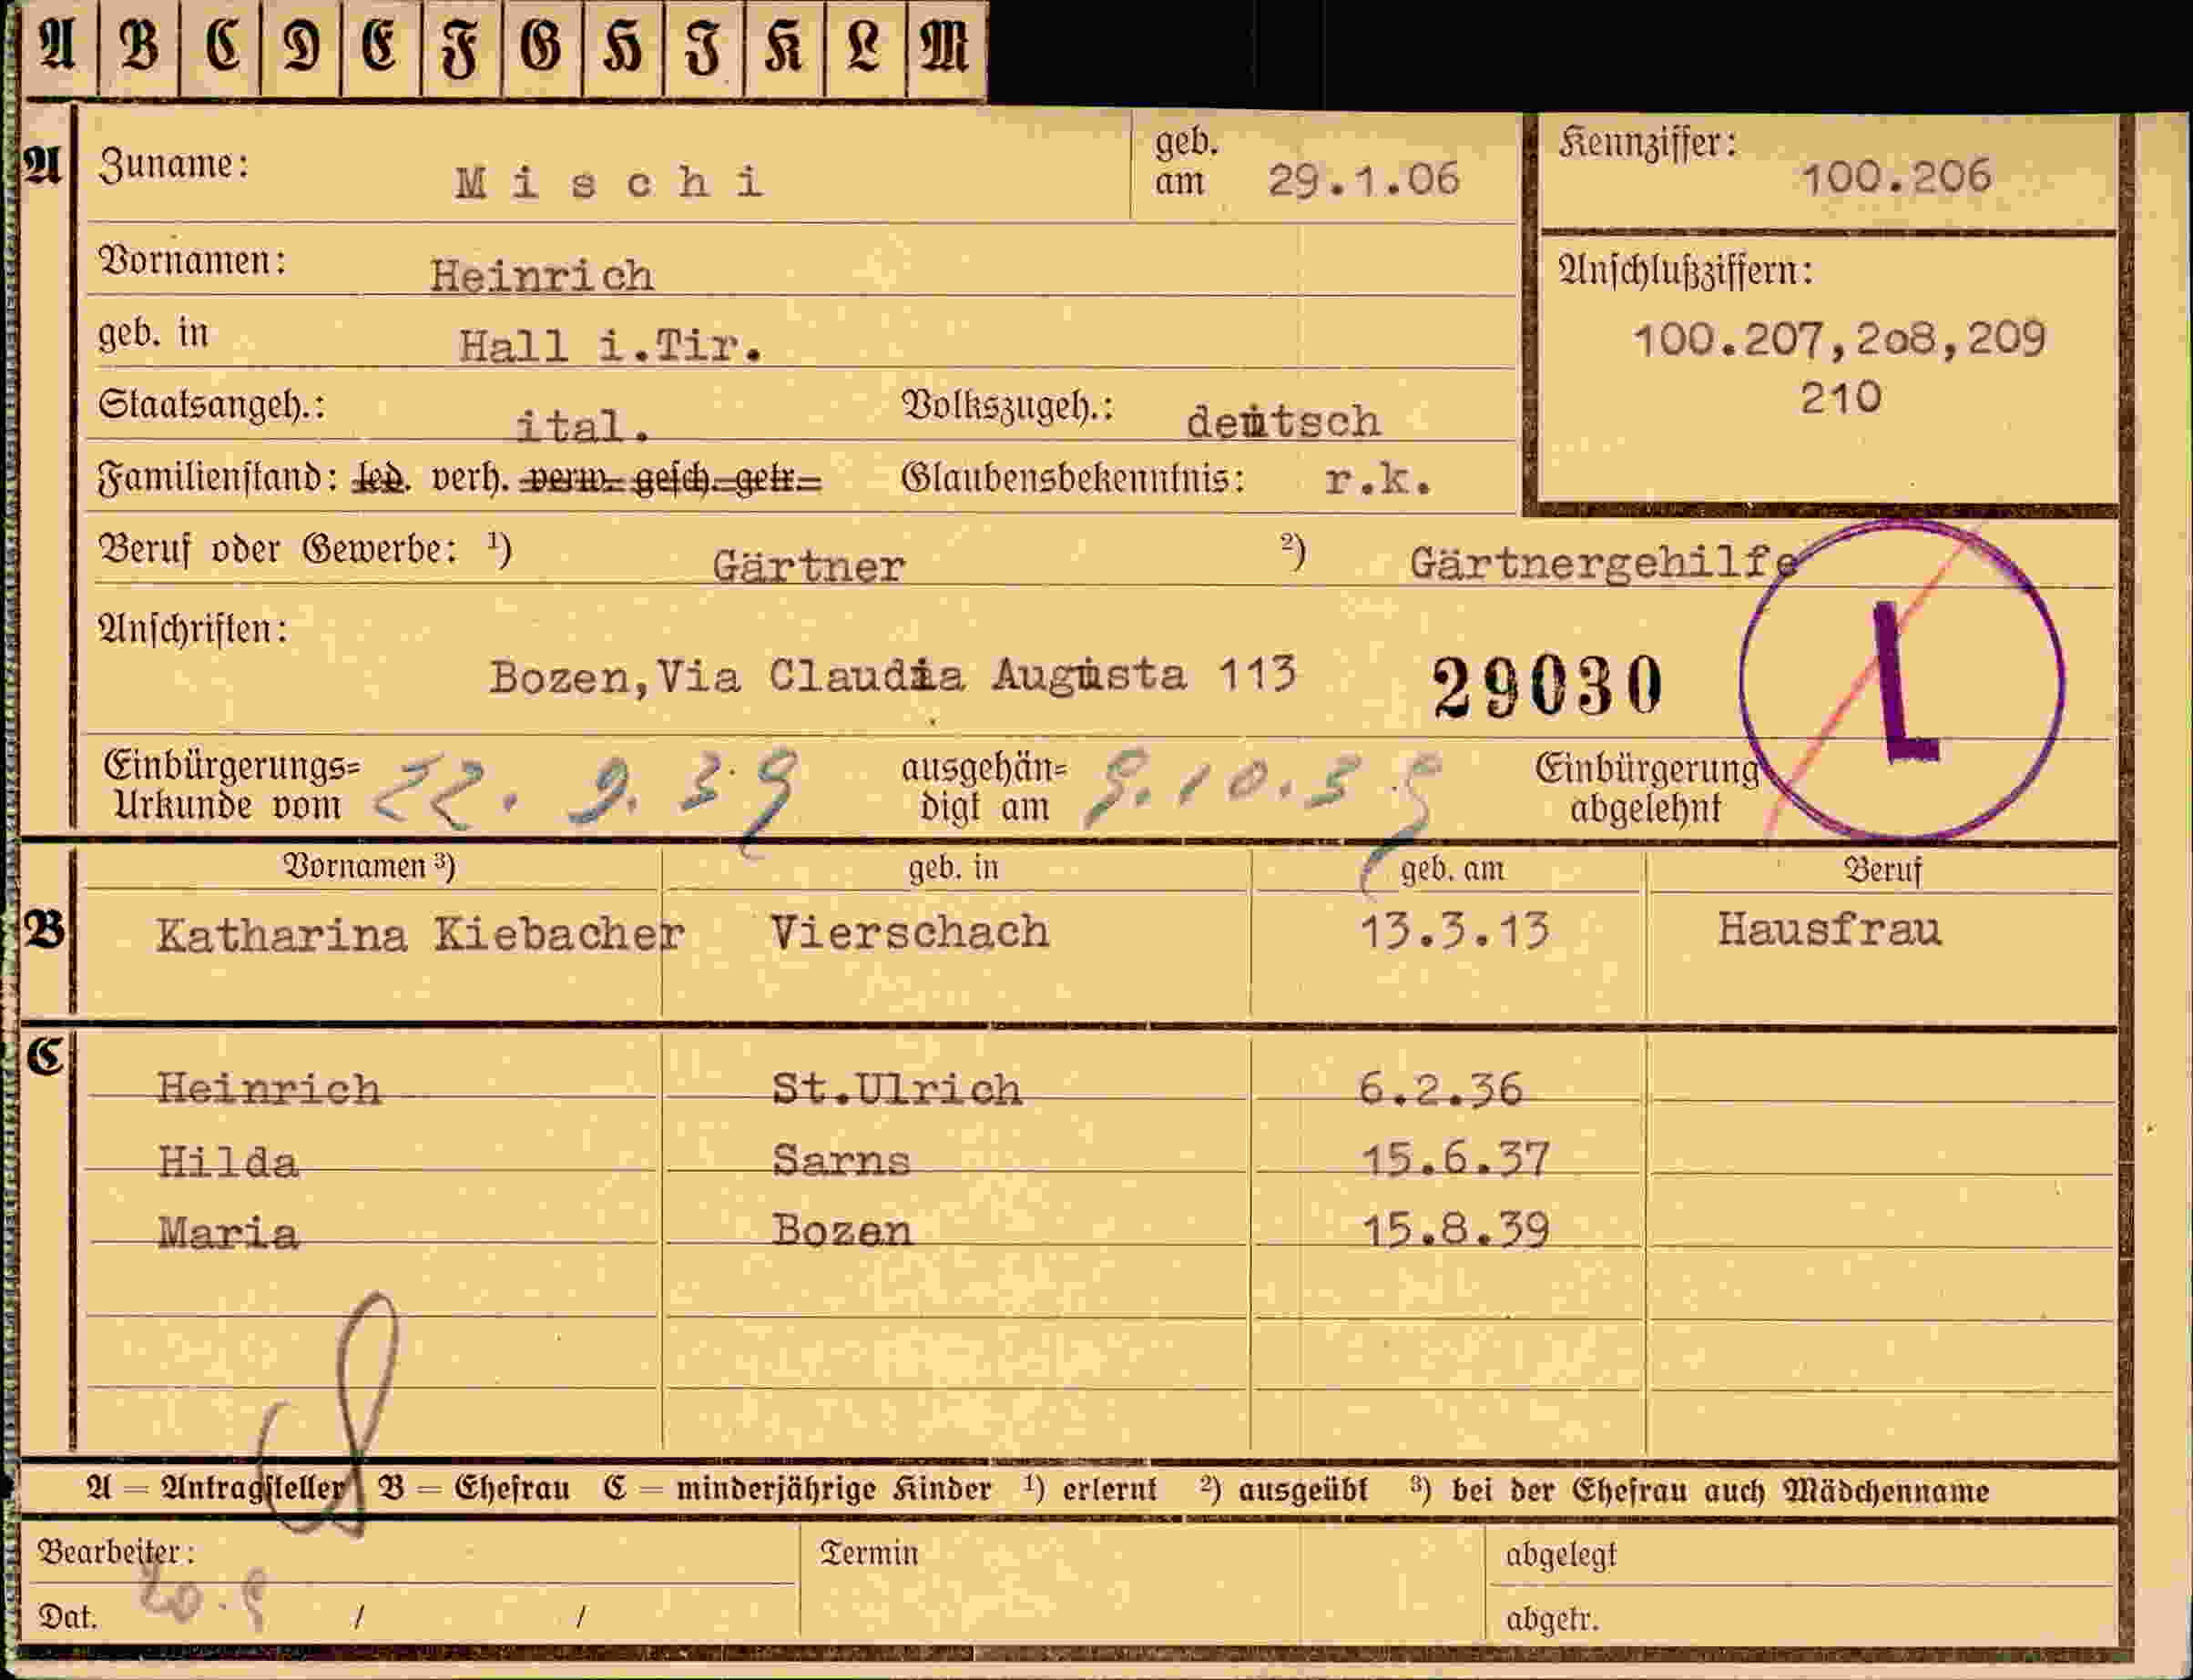 A B C D E F G H J K L M
A Zuname: Mischi geb. am 29.1.06 Kennziffer: 100.206
Vornamen: Heinrich Anschlußziffern:
geb. in Hall i.Tir. 100.207,2o8,209
Staatsangeh.: ital. Volkszugeh.: deutsch 210
Familienstand: led. verh. verw. gesch. getr. Glaubensbekenntnis: r.k.
Beruf oder Gewerbe: ¹) Gärtner ²) Gärtnergehilfe
Anschriften:
Bozen,Via Claudia Augusta 113 29030 L
Einbürgerungs= Urkunde vom 22. 9. 39 ausgehän= digt am 9.10.39 Einbürgerung abgelehnt
Vornamen ³) geb. in geb. am Beruf
B Katharina Kiebacher Vierschach 13.3.13 Hausfrau
C
Heinrich St.Ulrich 6.2.36
Hilda Sarns 15.6.37
Maria Bozen 15.8.39
A = Antragsteller B = Ehefrau C = minderjährige Kinder ¹) erlernt ²) ausgeübt ³) bei der Ehefrau auch Mädchenname
Bearbeiter: Termin abgelegt
Dat. 20.9 / / abgetr.